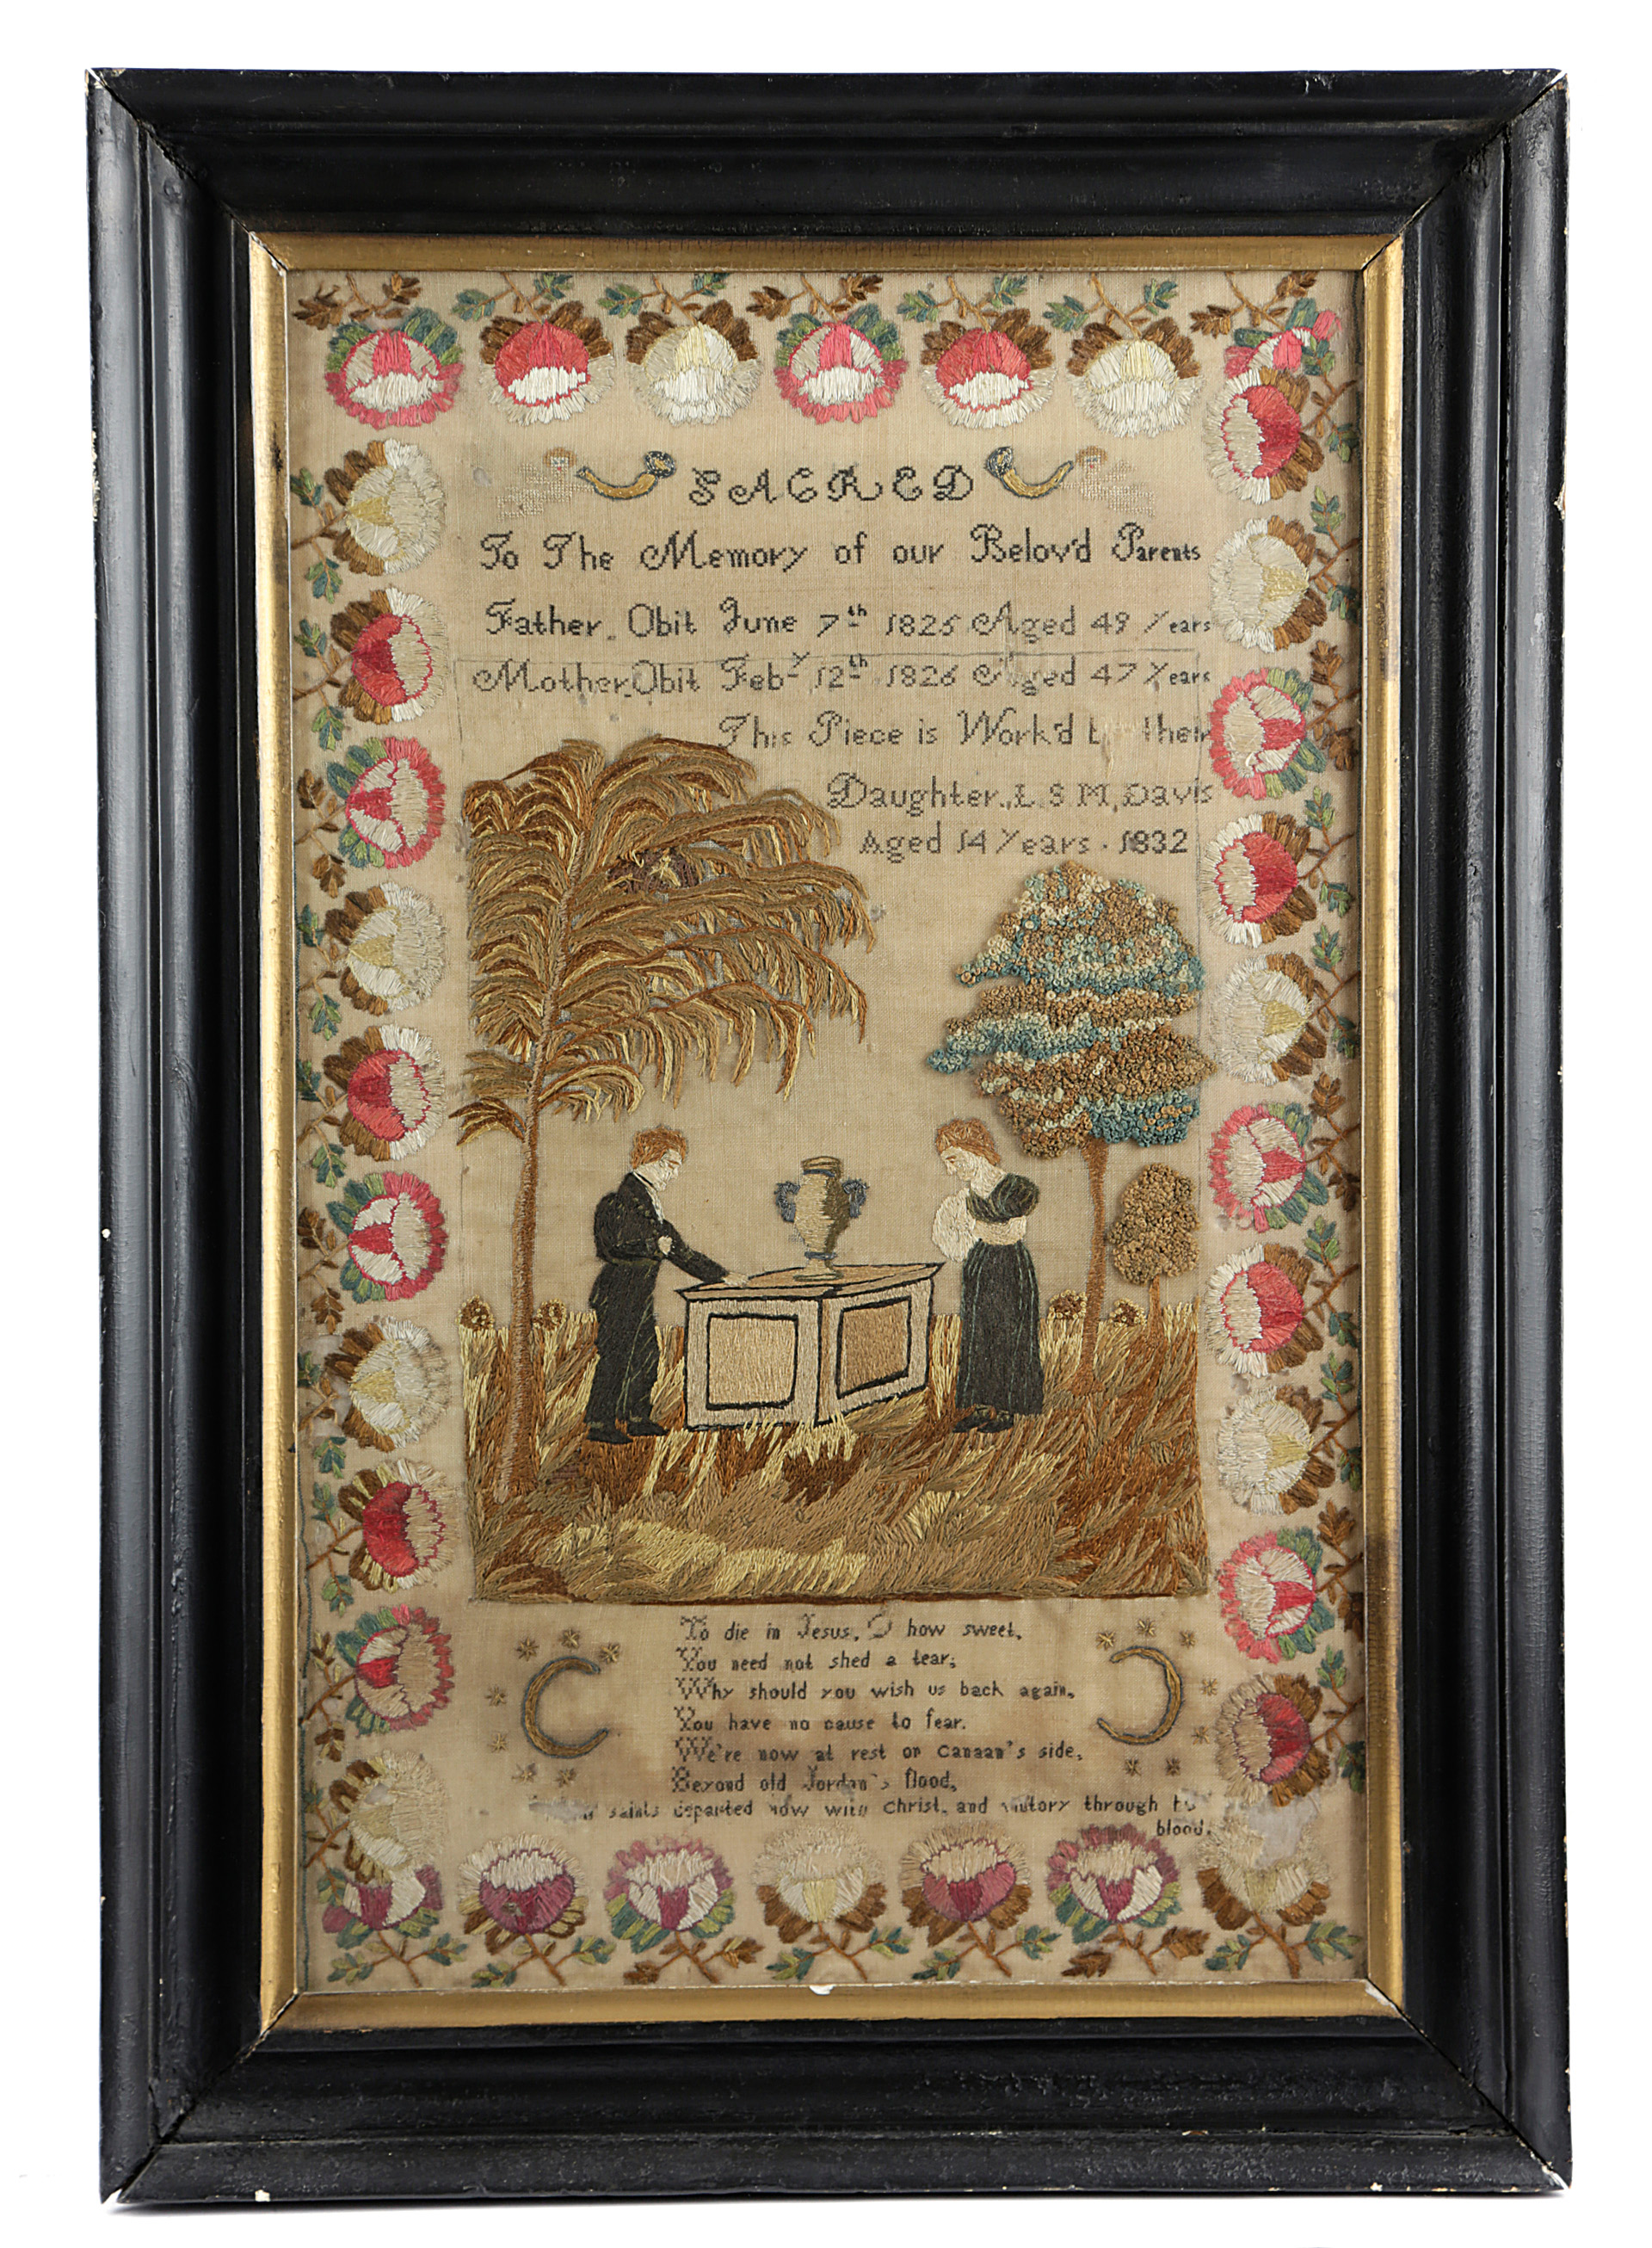 SACRED
To The Memory of our Belov'd Parents
Father. Obit June 7th 1825 Aged 49 Years
Mother. Obit Feby 12th 1826 Aged 47 Years
This Piece is Work'd their
Daughter., L. S. M, Davis
Aged 14 Years . 1832
To die in Jesus, O how sweet,
You need not shed a tear;
Why should you wish us back again,
You have no cause to fear.
We're now at rest on Canaan's side,
Beyond old Jordan's flood,
saints departed now with Christ, and through
blood.